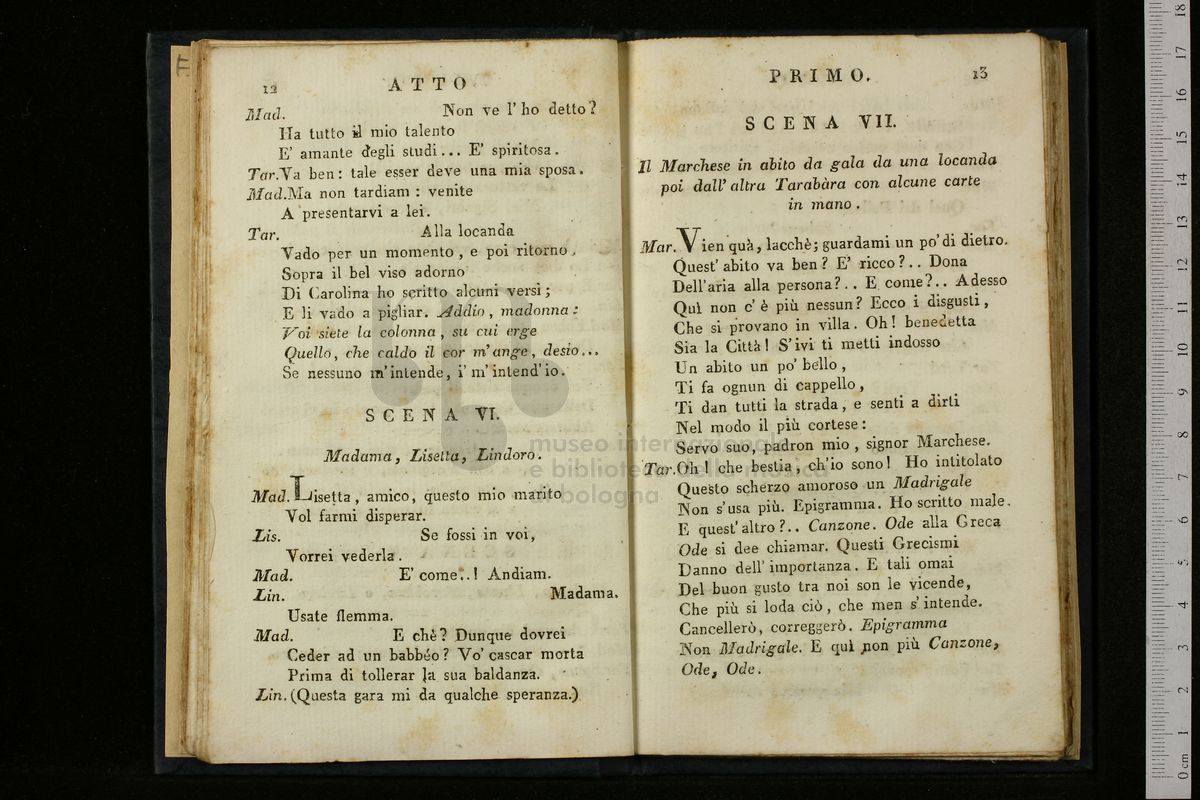 12 ATTO
Mad. Non ve l'ho detto?
Ha tutto il mio talento
E' amante degli studi... E' spiritosa.
Tar. Va ben: tale esser deve una mia sposa.
Mad. Ma non tardiam: venite
A presentarvi a lei.
Tar. Alla locanda
Vado per un momento, e poi ritorno.
Sopra il bel viso adorno
Di Carolina ho scritto alcuni versi;
E li vado a pigliar. Addio, madonna:
Voi siete la colonna, su cui erge
Quello, che caldo il cor m'ange, desio...
Se nessuno m'intende, i' m'intend'io.
SCENA VI.
Madama, Lisetta, Lindoro.
Mad. Lisetta, amico, questo mio marito
Vol farmi disperar.
Lis. Se fossi in voi,
Vorrei vederla.
Mad. E' come..! Andiam.
Lin. Madama.
Usate flemma.
Mad. E chè? Dunque dovrei
Ceder ad un babbéo? Vo' cascar morta
Prima di tollerar la sua baldanza.
Lin. (Questa gara mi da qualche speranza.)
PRIMO. 13
SCENA VII.
Il Marchese in abito da gala da una locanda
poi dall'altra Tarabàra con alcune carte
in mano.
Mar. Vien quà, lacchè; guardami un po' di dietro.
Quest' abito va ben? E' ricco?.. Dona
Dell'aria alla persona?.. E come?.. Adesso
Quì non c'è più nessun? Ecco i disgusti,
Che si provano in villa. Oh! benedetta
Sia la Città! S'ivi ti metti indosso
Un abito un po' bello,
Ti fa ognun di cappello,
Ti dan tutti la strada, e senti a dirti
Nel modo il più cortese:
Servo suo, padron mio, signor Marchese.
Tar. Oh! che bestia, ch'io sono! Ho intitolato
Questo scherzo amoroso un Madrigale
Non s'usa più. Epigramma. Ho scritto male.
E quest'altro?.. Canzone. Ode alla Greca
Ode si dee chiamar. Questi Grecismi
Danno dell'importanza. E tali omai
Del buon gusto tra noi son le vicende,
Che più si loda ciò, che men s'intende.
Cancellerò, correggerò. Epigramma
Non Madrigale. E quì non più Canzone,
Ode, Ode.
museo internazionale
e biblioteca della musica
di bologna
F
0 cm 1 2 3 4 5 6 7 8 9 10 11 12 13 14 15 16 17 18